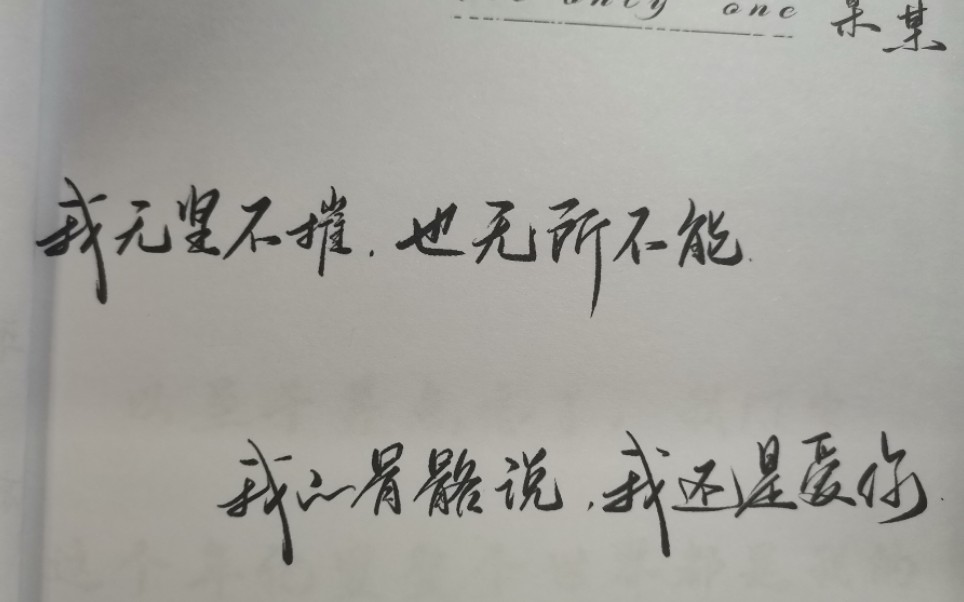 only one 某某
我无坚不摧.也无所不能.
我心骨骼说,我还是爱你.